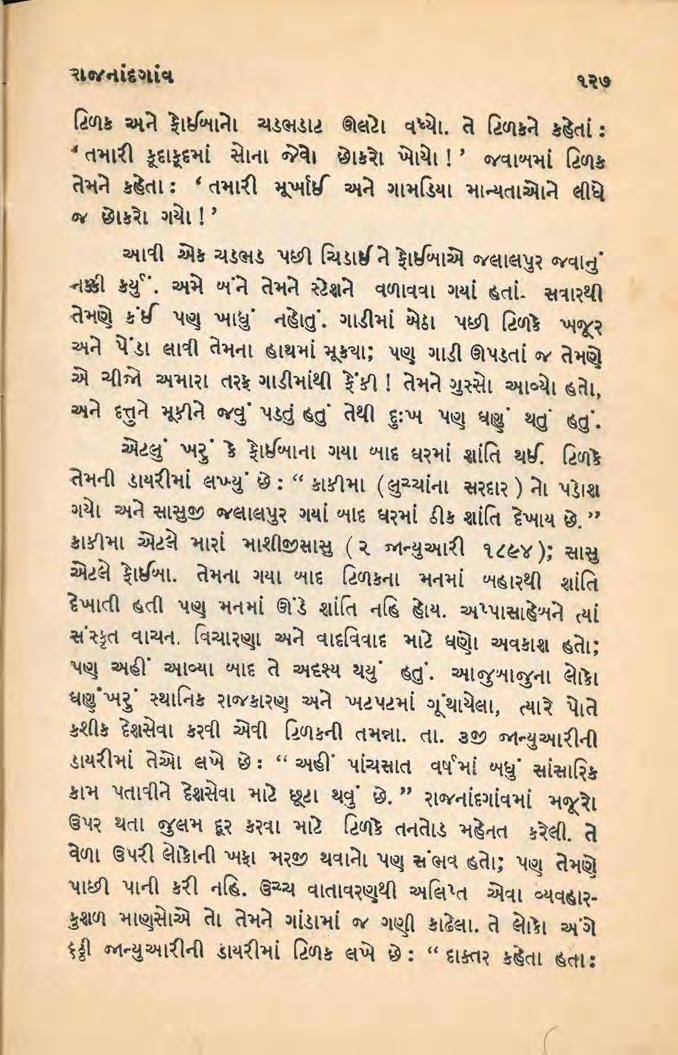 રાજનાંદગાંવ ૧૨૭
ટિળક અને ફોઈબાનો ચડભડાટ ઊલટો વધ્યો. તે ટિળકને કહેતાં :
‘તમારી કૂદાકૂદમાં સોના જેવો છોકરો ખોયો !’ જવાબમાં ટિળક
તેમને કહેતા : ‘તમારી મૂર્ખાઈ અને ગામડિયા માન્યતાઓને લીધે
જ છોકરો ગયો !’
આવી એક ચડભડ પછી ચિડાઈ ને ફોઈબાએ જલાલપુર જવાનું
નક્કી કર્યું. અમે બંને તેમને સ્ટેશને વળાવવા ગયાં હતાં. સવારથી
તેમણે કંઈ પણ ખાધું નહોતું. ગાડીમાં બેઠા પછી ટિળકે ખજૂર
અને પેંડા લાવી તેમના હાથમાં મૂક્યા; પણ ગાડી ઊપડતાં જ તેમણે
એ ચીજો અમારા તરફ ગાડીમાંથી ફેંકી ! તેમને ગુસ્સો આવ્યો હતો,
અને દત્તુને મૂકીને જવું પડતું હતું તેથી દુઃખ પણ ઘણું થતું હતું.
એટલું ખરું કે ફોઈબાના ગયા બાદ ઘરમાં શાંતિ થઈ. ટિળકે
તેમની ડાયરીમાં લખ્યું છે : “ કાકીમા ( લુચ્ચાંના સરદાર ) નો પડોશ
ગયો અને સાસુજી જલાલપુર ગયાં બાદ ઘરમાં ઠીક શાંતિ દેખાય છે.”
કાકીમા એટલે મારાં માશીજીસાસુ ( ૨ જાન્યુઆરી ૧૮૯૪ ); સાસુ
એટલે ફોઈબા. તેમના ગયા બાદ ટિળકના મનમાં બહારથી શાંતિ
દેખાતી હતી પણ મનમાં ઊંડે શાંતિ નહિ હોય. અપ્પાસાહેબને ત્યાં
સંસ્કૃત વાચન. વિચારણા અને વાદવિવાદ માટે ઘણો અવકાશ હતો;
પણ અહીં આવ્યા બાદ તે અદૃશ્ય થયું હતું. આજુબાજુના લોકો
ઘણુંખરું સ્થાનિક રાજકારણ અને ખટપટમાં ગૂંથાયેલા, ત્યારે પોતે
કશીક દેશસેવા કરવી એવી ટિળકની તમન્ના. તા. ૩જી જાન્યુઆરીની
ડાયરીમાં તેઓ લખે છે : “ અહીં પાંચસાત વર્ષમાં બધું સાંસારિક
કામ પતાવીને દેશસેવા માટે છૂટા થવું છે. ” રાજનાંદગાંવમાં મજૂરો
ઉપર થતા જુલમ દૂર કરવા માટે ટિળકે તનતોડ મહેનત કરેલી. તે
વેળા ઉપરી લોકોની ખફા મરજી થવાનો પણ સંભવ હતો; પણ તેમણે
પાછી પાની કરી નહિ. ઉચ્ચ વાતાવરણથી અલિપ્ત એવા વ્યવહાર-
કુશળ માણસોએ તો તેમને ગાંડામાં જ ગણી કાઢેલા. તે લોકો અંગે
૬ઠ્ઠી જાન્યુઆરીની ડાયરીમાં ટિળક લખે છે : “ દાક્તર કહેતા હતા :